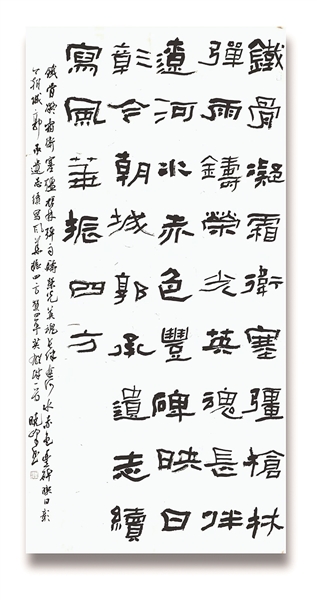 鐵骨凝霜衛塞疆槍林
彈雨鑄榮光英魂長伴
遼河水赤色豐碑映日
彰今朝城郭承遺志續
寫風華振四方
鐵骨凝霜衛塞疆槍林彈雨鑄榮光英魂長伴遼河水赤色豐碑映日彰
今朝城郭承遺志續寫風華振四方